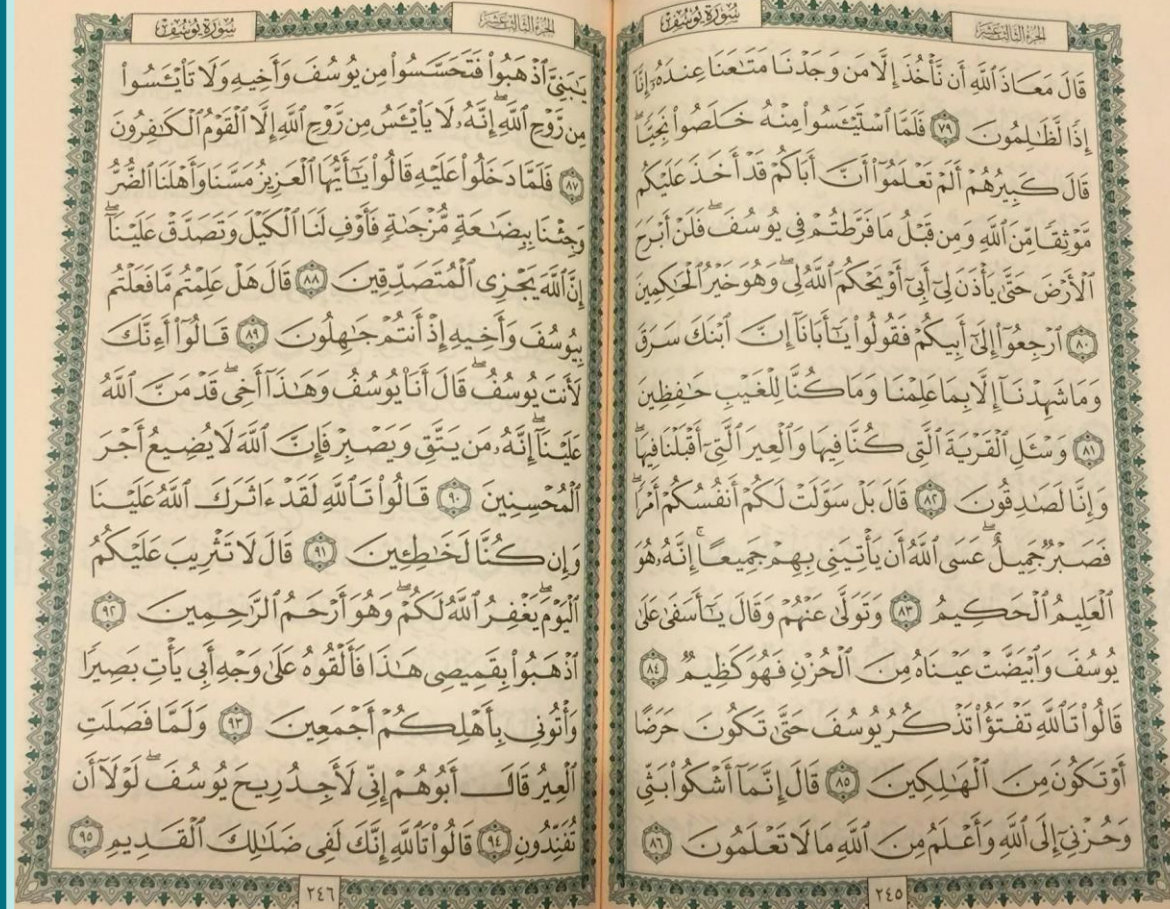 سُورَةُ يُوسُفَ
الجزء الثالث عشر
قَالَ مَعَاذَ ٱللَّهِ أَن نَّأْخُذَ إِلَّا مَن وَجَدْنَا مَتَـٰعَنَا عِندَهُۥٓ إِنَّآ
إِذًا لَّظَـٰلِمُونَ ٧٩ فَلَمَّا ٱسْتَيْـَٔسُوا۟ مِنْهُ خَلَصُوا۟ نَجِيًّا ۖ
قَالَ كَبِيرُهُمْ أَلَمْ تَعْلَمُوٓا۟ أَنَّ أَبَاكُمْ قَدْ أَخَذَ عَلَيْكُم
مَّوْثِقًا مِّنَ ٱللَّهِ وَمِن قَبْلُ مَا فَرَّطتُمْ فِى يُوسُفَ ۖ فَلَنْ أَبْرَحَ
ٱلْأَرْضَ حَتَّىٰ يَأْذَنَ لِىٓ أَبِىٓ أَوْ يَحْكُمَ ٱللَّهُ لِى ۖ وَهُوَ خَيْرُ ٱلْحَـٰكِمِينَ
٨٠ ٱرْجِعُوٓا۟ إِلَىٰٓ أَبِيكُمْ فَقُولُوا۟ يَـٰٓأَبَانَآ إِنَّ ٱبْنَكَ سَرَقَ
وَمَا شَهِدْنَآ إِلَّا بِمَا عَلِمْنَا وَمَا كُنَّا لِلْغَيْبِ حَـٰفِظِينَ
٨١ وَسْـَٔلِ ٱلْقَرْيَةَ ٱلَّتِى كُنَّا فِيهَا وَٱلْعِيرَ ٱلَّتِىٓ أَقْبَلْنَا فِيهَا ۖ
وَإِنَّا لَصَـٰدِقُونَ ٨٢ قَالَ بَلْ سَوَّلَتْ لَكُمْ أَنفُسُكُمْ أَمْرًا ۖ
فَصَبْرٌ جَمِيلٌ ۖ عَسَى ٱللَّهُ أَن يَأْتِيَنِى بِهِمْ جَمِيعًا ۚ إِنَّهُۥ هُوَ
ٱلْعَلِيمُ ٱلْحَكِيمُ ٨٣ وَتَوَلَّىٰ عَنْهُمْ وَقَالَ يَـٰٓأَسَفَىٰ عَلَىٰ
يُوسُفَ وَٱبْيَضَّتْ عَيْنَاهُ مِنَ ٱلْحُزْنِ فَهُوَ كَظِيمٌ ٨٤
قَالُوا۟ تَٱللَّهِ تَفْتَؤُا۟ تَذْكُرُ يُوسُفَ حَتَّىٰ تَكُونَ حَرَضًا
أَوْ تَكُونَ مِنَ ٱلْهَـٰلِكِينَ ٨٥ قَالَ إِنَّمَآ أَشْكُوا۟ بَثِّى
وَحُزْنِىٓ إِلَى ٱللَّهِ وَأَعْلَمُ مِنَ ٱللَّهِ مَا لَا تَعْلَمُونَ ٨٦
٢٤٥
سُورَةُ يُوسُفَ
الجزء الثالث عشر
يَـٰبَنِىَّ ٱذْهَبُوا۟ فَتَحَسَّسُوا۟ مِن يُوسُفَ وَأَخِيهِ وَلَا تَا۟يْـَٔسُوا۟
مِن رَّوْحِ ٱللَّهِ ۖ إِنَّهُۥ لَا يَا۟يْـَٔسُ مِن رَّوْحِ ٱللَّهِ إِلَّا ٱلْقَوْمُ ٱلْكَـٰفِرُونَ
٨٧ فَلَمَّا دَخَلُوا۟ عَلَيْهِ قَالُوا۟ يَـٰٓأَيُّهَا ٱلْعَزِيزُ مَسَّنَا وَأَهْلَنَا ٱلضُّرُّ
وَجِئْنَا بِبِضَـٰعَةٍ مُّزْجَىٰةٍ فَأَوْفِ لَنَا ٱلْكَيْلَ وَتَصَدَّقْ عَلَيْنَآ ۖ
إِنَّ ٱللَّهَ يَجْزِى ٱلْمُتَصَدِّقِينَ ٨٨ قَالَ هَلْ عَلِمْتُم مَّا فَعَلْتُم
بِيُوسُفَ وَأَخِيهِ إِذْ أَنتُمْ جَـٰهِلُونَ ٨٩ قَالُوٓا۟ أَءِنَّكَ
لَأَنتَ يُوسُفُ ۖ قَالَ أَنَا۠ يُوسُفُ وَهَـٰذَآ أَخِى ۖ قَدْ مَنَّ ٱللَّهُ
عَلَيْنَآ ۖ إِنَّهُۥ مَن يَتَّقِ وَيَصْبِرْ فَإِنَّ ٱللَّهَ لَا يُضِيعُ أَجْرَ
ٱلْمُحْسِنِينَ ٩٠ قَالُوا۟ تَٱللَّهِ لَقَدْ ءَاثَرَكَ ٱللَّهُ عَلَيْنَا
وَإِن كُنَّا لَخَـٰطِـِٔينَ ٩١ قَالَ لَا تَثْرِيبَ عَلَيْكُمُ
ٱلْيَوْمَ ۖ يَغْفِرُ ٱللَّهُ لَكُمْ ۖ وَهُوَ أَرْحَمُ ٱلرَّٰحِمِينَ ٩٢
ٱذْهَبُوا۟ بِقَمِيصِى هَـٰذَا فَأَلْقُوهُ عَلَىٰ وَجْهِ أَبِى يَأْتِ بَصِيرًا
وَأْتُونِى بِأَهْلِكُمْ أَجْمَعِينَ ٩٣ وَلَمَّا فَصَلَتِ
ٱلْعِيرُ قَالَ أَبُوهُمْ إِنِّى لَأَجِدُ رِيحَ يُوسُفَ ۖ لَوْلَآ أَن
تُفَنِّدُونِ ٩٤ قَالُوا۟ تَٱللَّهِ إِنَّكَ لَفِى ضَلَـٰلِكَ ٱلْقَدِيمِ ٩٥
٢٤٦